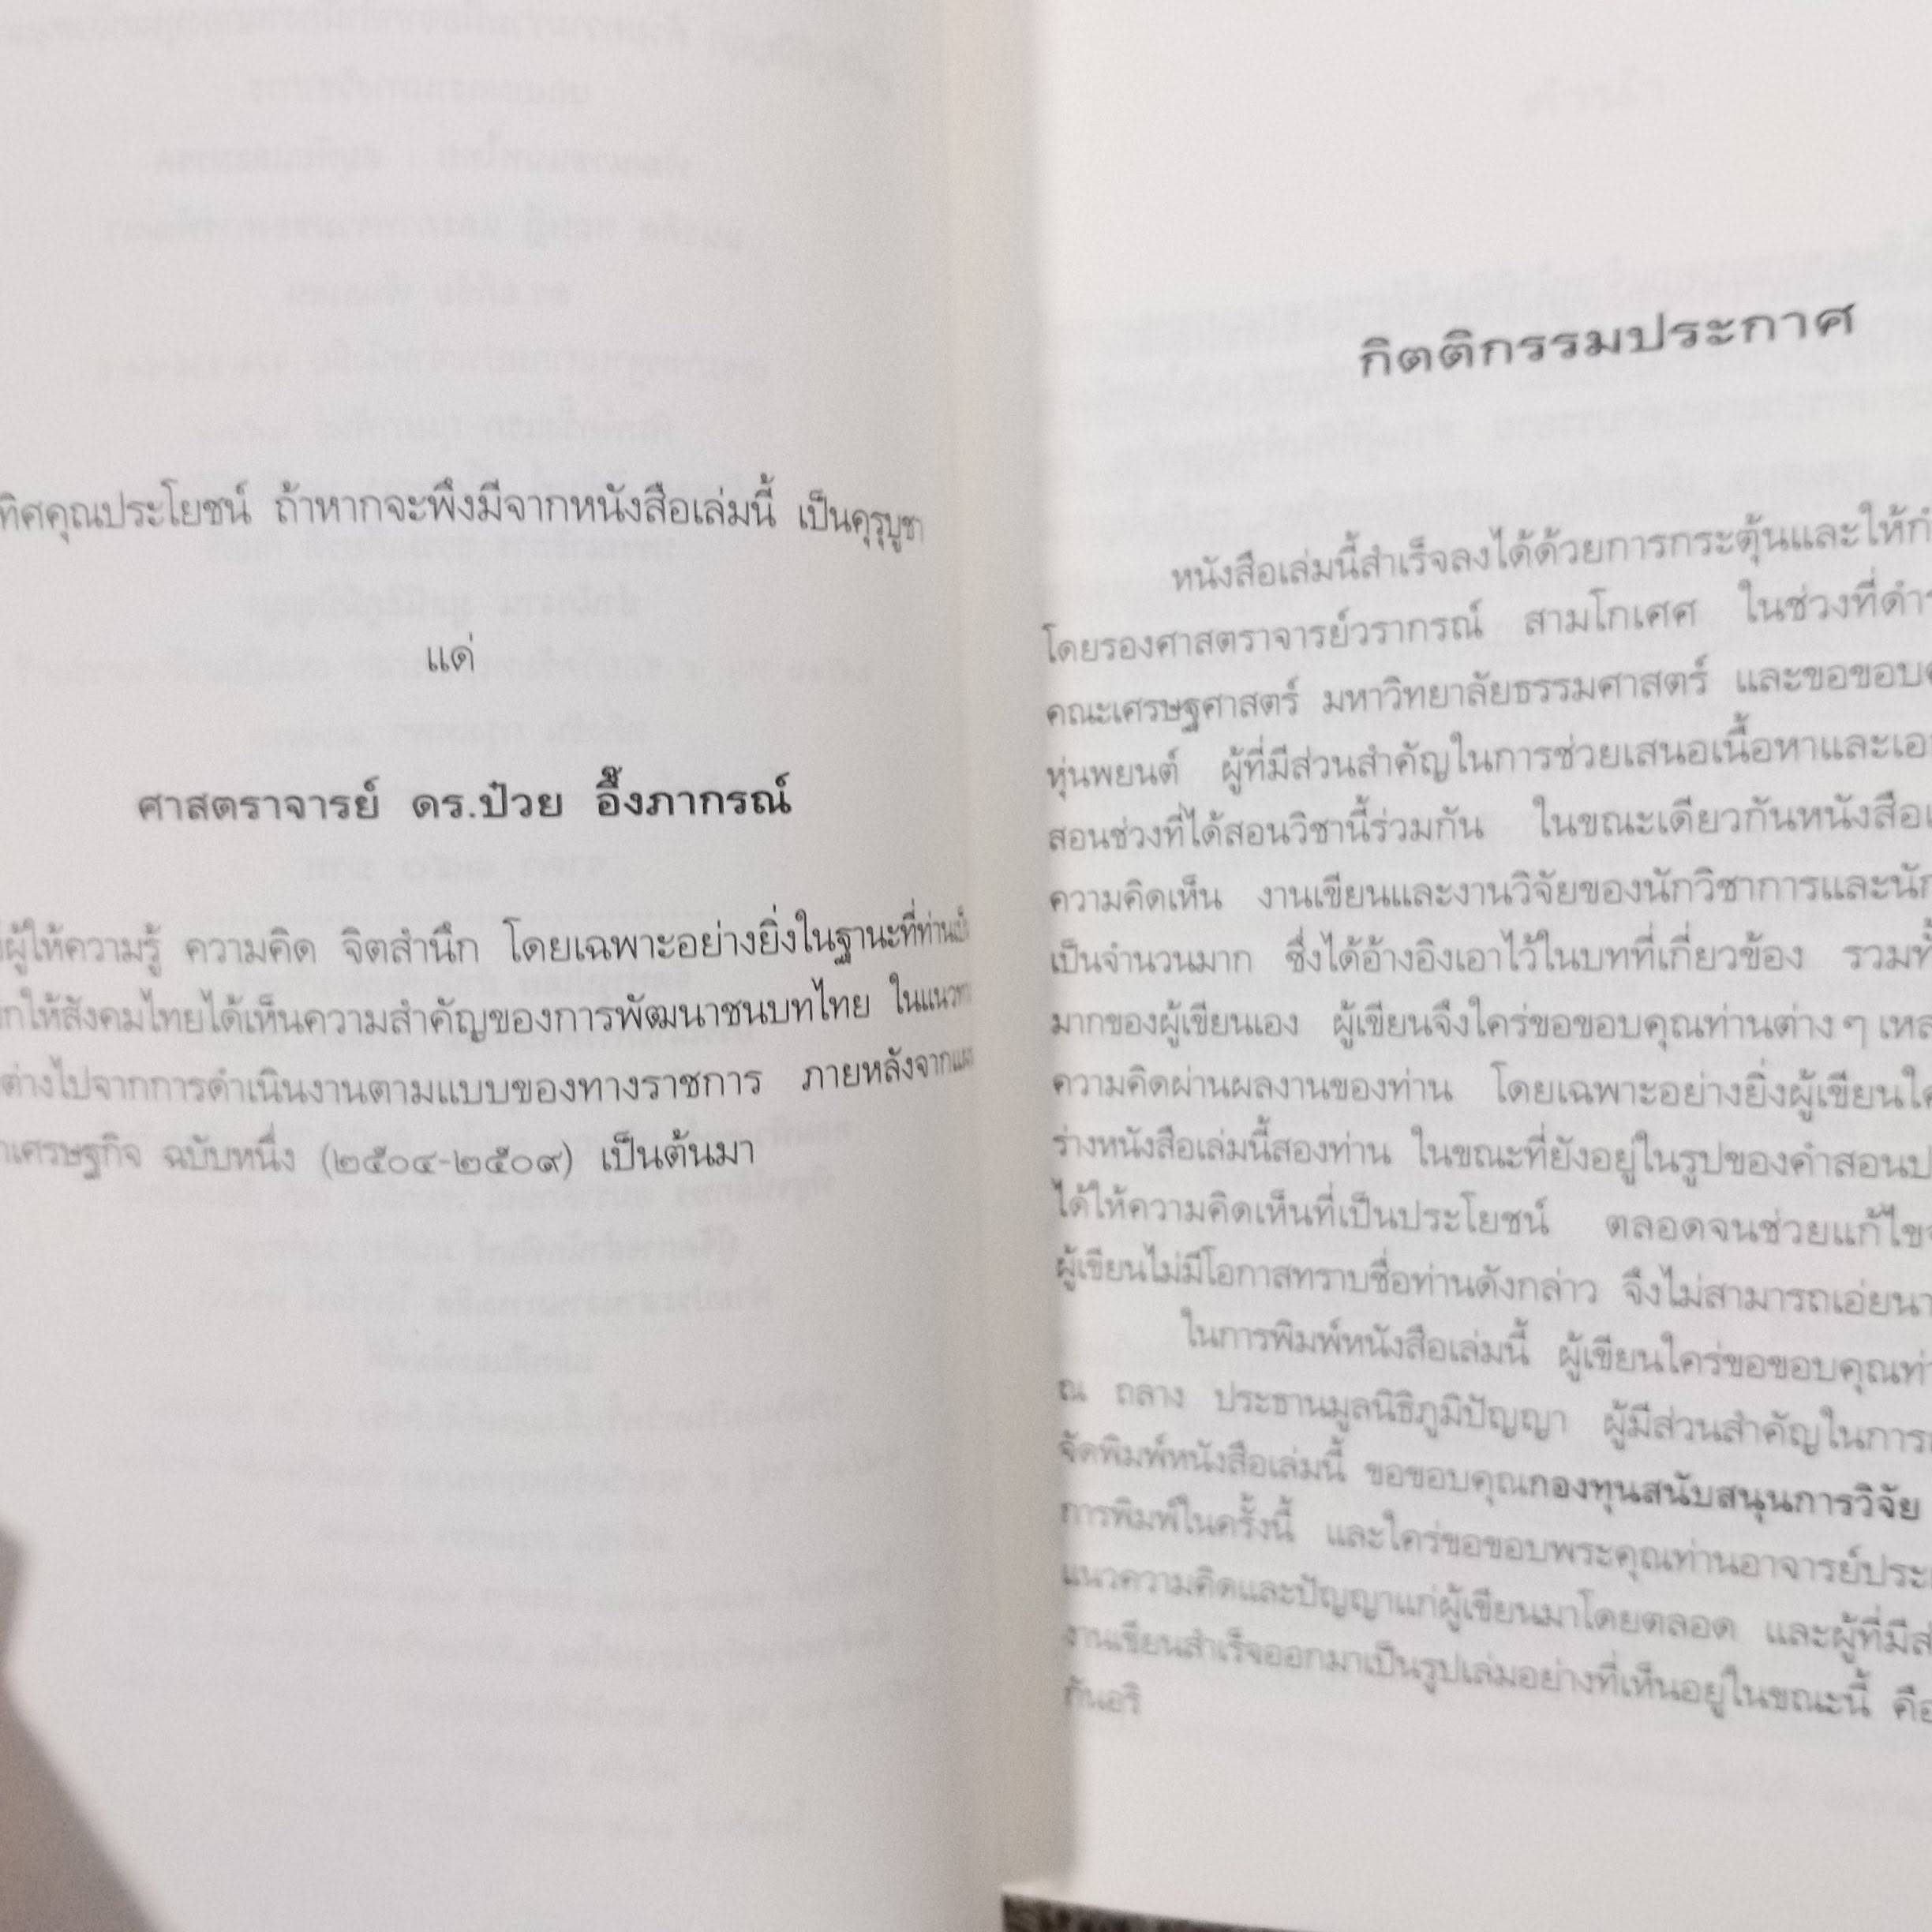 คุณประโยชน์ ถ้าหากจะพึงมีจากหนังสือเล่มนี้ เป็นคุรุบูชา
แด่
ศาสตราจารย์ ดร.ป๋วย อึ๊งภากรณ์
ผู้ให้ความรู้ ความคิด จิตสำนึก โดยเฉพาะอย่างยิ่งในฐานะที่ท่าน
ให้สังคมไทยได้เห็นความสำคัญของการพัฒนาชนบทไทย
ต่างไปจากการดำเนินงานตามแบบของทางราชการ ภายหลังจาก
เศรษฐกิจ ฉบับหนึ่ง (๒๕๐๔-๒๕๐๙) เป็นต้นมา
กิตติกรรมประกาศ
หนังสือเล่มนี้สำเร็จลงได้ด้วยการกระตุ้นและให้
โดยรองศาสตราจารย์วรากรณ์ สามโกเศศ ในช่วงที่
คณะเศรษฐศาสตร์ มหาวิทยาลัยธรรมศาสตร์ และขอขอบ
หุ่นพยนต์ ผู้ที่มีส่วนสำคัญในการช่วยเสนอเนื้อหาและ
สอนช่วงที่ได้สอนวิชานี้ร่วมกัน ในขณะเดียวกันหนังสือ
ความคิดเห็น งานเขียนและงานวิจัยของนักวิชาการและ
เป็นจำนวนมาก ซึ่งได้อ้างอิงเอาไว้ในบทที่เกี่ยวข้อง
มากของผู้เขียนเอง ผู้เขียนจึงใคร่ขอขอบคุณท่านต่าง ๆ
ความคิดผ่านผลงานของท่าน โดยเฉพาะอย่างยิ่งผู้เขียน
ร่างหนังสือเล่มนี้สองท่าน ในขณะที่ยังอยู่ในรูปของคำสอน
ได้ให้ความคิดเห็นที่เป็นประโยชน์ ตลอดจนช่วยแก้ไข
ผู้เขียนไม่มีโอกาสทราบชื่อท่านดังกล่าว จึงไม่สามารถเอ่ย
ในการพิมพ์หนังสือเล่มนี้ ผู้เขียนใคร่ขอขอบคุณ
ณ ถลาง ประธานมูลนิธิภูมิปัญญา ผู้มีส่วนสำคัญในการ
จัดพิมพ์หนังสือเล่มนี้ ขอขอบคุณกองทุนสนับสนุนการวิจัย
การพิมพ์ในครั้งนี้ และใคร่ขอขอบพระคุณท่านอาจารย์
แนวความคิดและปัญญาแก่ผู้เขียนมาโดยตลอด และผู้ที่มี
งานเขียนสำเร็จออกมาเป็นรูปเล่มอย่างที่เห็นอยู่ในขณะนี้ คือ
กันอริ